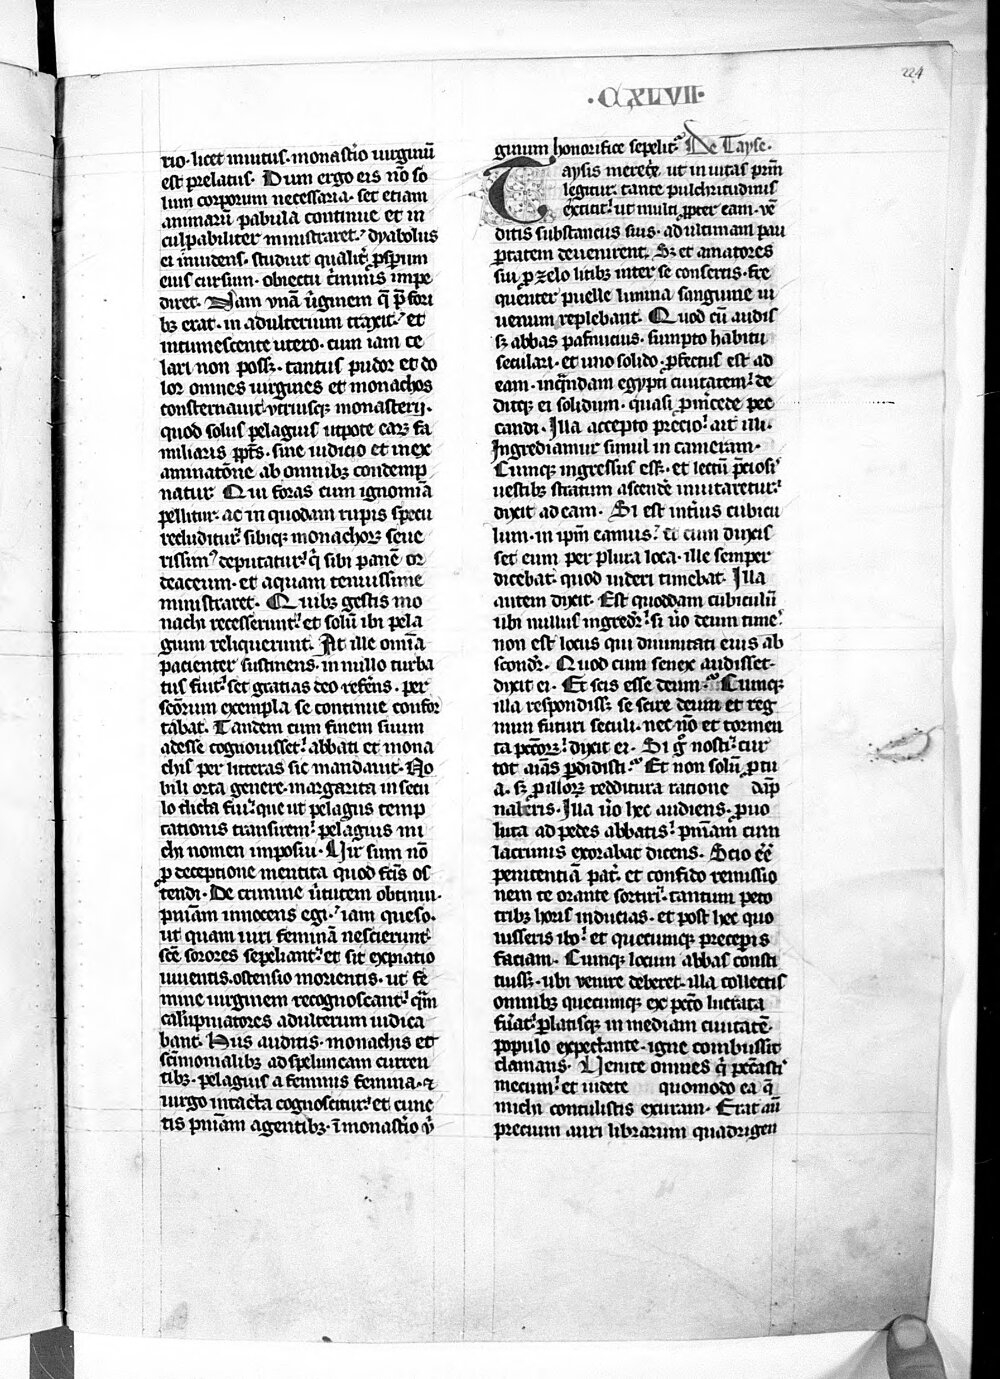 224
·CCXLVII·
rio· licet inuitus· monast̄io uirginū
est prelatus· Dum ergo eis nō so
lum corporum necessaria· set etiam
animarū pabula continue et in
culpabiliter ministraret· dyabolus
ei inuidens· studuit qualit̄ ꝓspum
eius cursum· obiectu c̄minis impe
diret· Nam unā ūginem q̄ p̄ fori
bꝫ erat· in adulterium traxit· et
intumescente utero· cum iam ce
lari non possꝫ· tantus pudor et do
lor omnes uirgines et monachos
consternauit· vtriusqꝫ monasterij·
quod solus pelagius utpote earꝝ fa
miliaris p̄pts̄· sine iudicio et inex
aminatōne ab omnibꝫ condemp
natur· Qui foras cum ignomīa
pellitur· ac in quodam rupis specu
recluditur· sibiqꝫ monachorꝝ seue
rissimꝰ deputatur· q̄ sibi panē or
deaceum· et aquam tenuissime
ministraret· Quibꝫ gestis mo
nachi recesserunt· et solū ibi pela
gium reliquerunt· At ille omīa
pacienter sustinens· in nullo turba
tus fuit· set gratias deo refēns· per
sc̄orum exempla se continue confor
tabat· Tandem cum finem suum
adesse cognouisset· abbati et mona
chis per litteras sic mandauit· No
bili orta genere· margarita in secu
lo dicta fui· que ut pelagus temp
tationis transirem· pelagius mi
chi nomen imposui· Vir sum nō
ꝓ deceptione mentita quod fc̄is os
tendi· De crimine ūtutem obtinui·
pn̄iam innocens egi· iam queso·
ut quam uiri feminā nescierunt·
sc̄e sorores sepeliant· et sit expiatio
uiuentis· ostensio morientis· ut fe
mine uirginem recognoscant· q̄m
calūpniatores adulterum iudica
bant· Hiis auditis· monachis et
sc̄imonialibꝫ ad speluncam curren
tibꝫ· pelagius a feminis femina· ⁊
uirgo intacta cognoscitur· et cunc
tis pn̄iam agentibꝫ· ī monast̄io ū
ginum honorifice sepelit̄· De Tayse·
Taysis meret̄x· ut in uitas prm̄
legitur· tante pulchritudinis
extitit· ut multi ꝓpter eam· vē
ditis substanciis suis· ad ultimam pau
ꝑtatem deuenirent· Sꝫ et amatores
sui p̱ zelo litibꝫ inter se consertis· fre
quenter puelle limina sanguine iu
uenum replebant· Quod cū audis
sꝫ abbas pafnucius· sumpto habitu
seculari· et uno solido· ꝓfectus est ad
eam· in q̄ndam egypti ciuitatem· de
ditqꝫ ei solidum· quasi ꝓ m̄cede pec
candi· Illa accepto precio· ait illi·
Ingrediamur simul in cameram·
Cumqꝫ ingressus essꝫ· et lectū p̄ciosi
uestibꝫ stratum ascende inuitaretur·
dixit ad eam· Si est int̄ius cubicu
lum· in ip̄m eamus· Et cum duxis
set eum per plura loca· ille semper
dicebat· quod uideri timebat· Illa
autem dixit· Est quoddam cubiculū
ubi nullus ingredit̄· si ūo deum times·
non est locus qui diuinitati eius ab
scondr̄· Quod cum senex audisset·
dixit ei· Et scis esse deum· Cumqꝫ
illa respondissꝫ se scire deum et reg
num futuri seculi· nec nō et tormen
ta pctōrꝝ· dixit ei· Si g̊ nosti· cur
tot aīas ꝑdidisti· Et non solū ꝓ tu
a· sꝫ ꝓ illorꝝ redditura ratione dāp
naberis· Illa ūo hec audiens· ꝓuo
luta ad pedes abbatis· pn̄iam cum
lacrimis exorabat dicens· Scio ēē
penitentiā pat̄· et confido remissio
nem te orante sortiri· tantum peto
tribꝫ horis inducias· et post hec quo
iusseris ibo· et quecumqꝫ preceperis
faciam· Cumqꝫ locum abbas consti
tuissꝫ· ubi venire deberet· illa collectis
omnibꝫ quecumqꝫ ex pcc̄o luctata
fūat· ꝓlatisqꝫ in mediam ciuitatē·
populo expectante· igne combussit
clamans· Venite omnes q̄ peccasti
mecum· et uidete quomodo ea q̄
michi contulistis exuram· Erat aū
precium auri librarum quadrigen